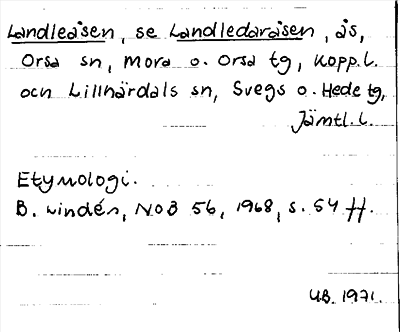 Landleåsen, se Landledaråsen, ås,
Orsa sn, Mora o. Orsa tg, Kopp.l.
och Lillhärdals sn, Svegs o. Hede tg,
Jämtl.l.
Etymologi.
B. Lindén, NOB 56, 1968, s. 54 ff.
UB. 1971.